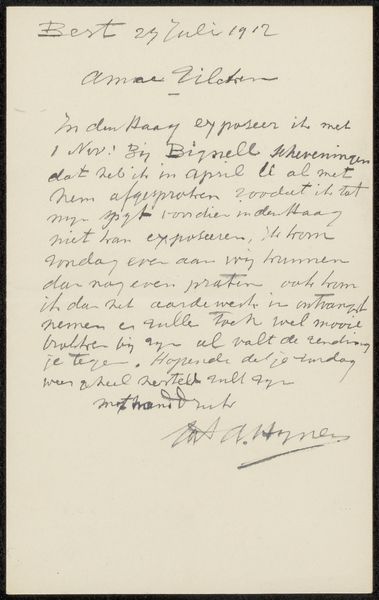 Best 29 Juli 1912
Amice Zilcken
In den Haag exposeer ik met
1 Nov: Bij Bignell Scheveningen
dat heb ik in april ll al met
hem afgesproken zoodat ik tot
mijn spijt voordien in den Haag
niet kan exposeeren, ik kom
zondag even aan wij kunnen
dan nog even praten ook kom
ik dan het aardewerk in ontvangst
nemen er zullen toch wel mooie
brokken bij zijn al valt de zending
je tegen. Hopende dat je zondag
weer geheel hersteld zult zijn
met handdruk